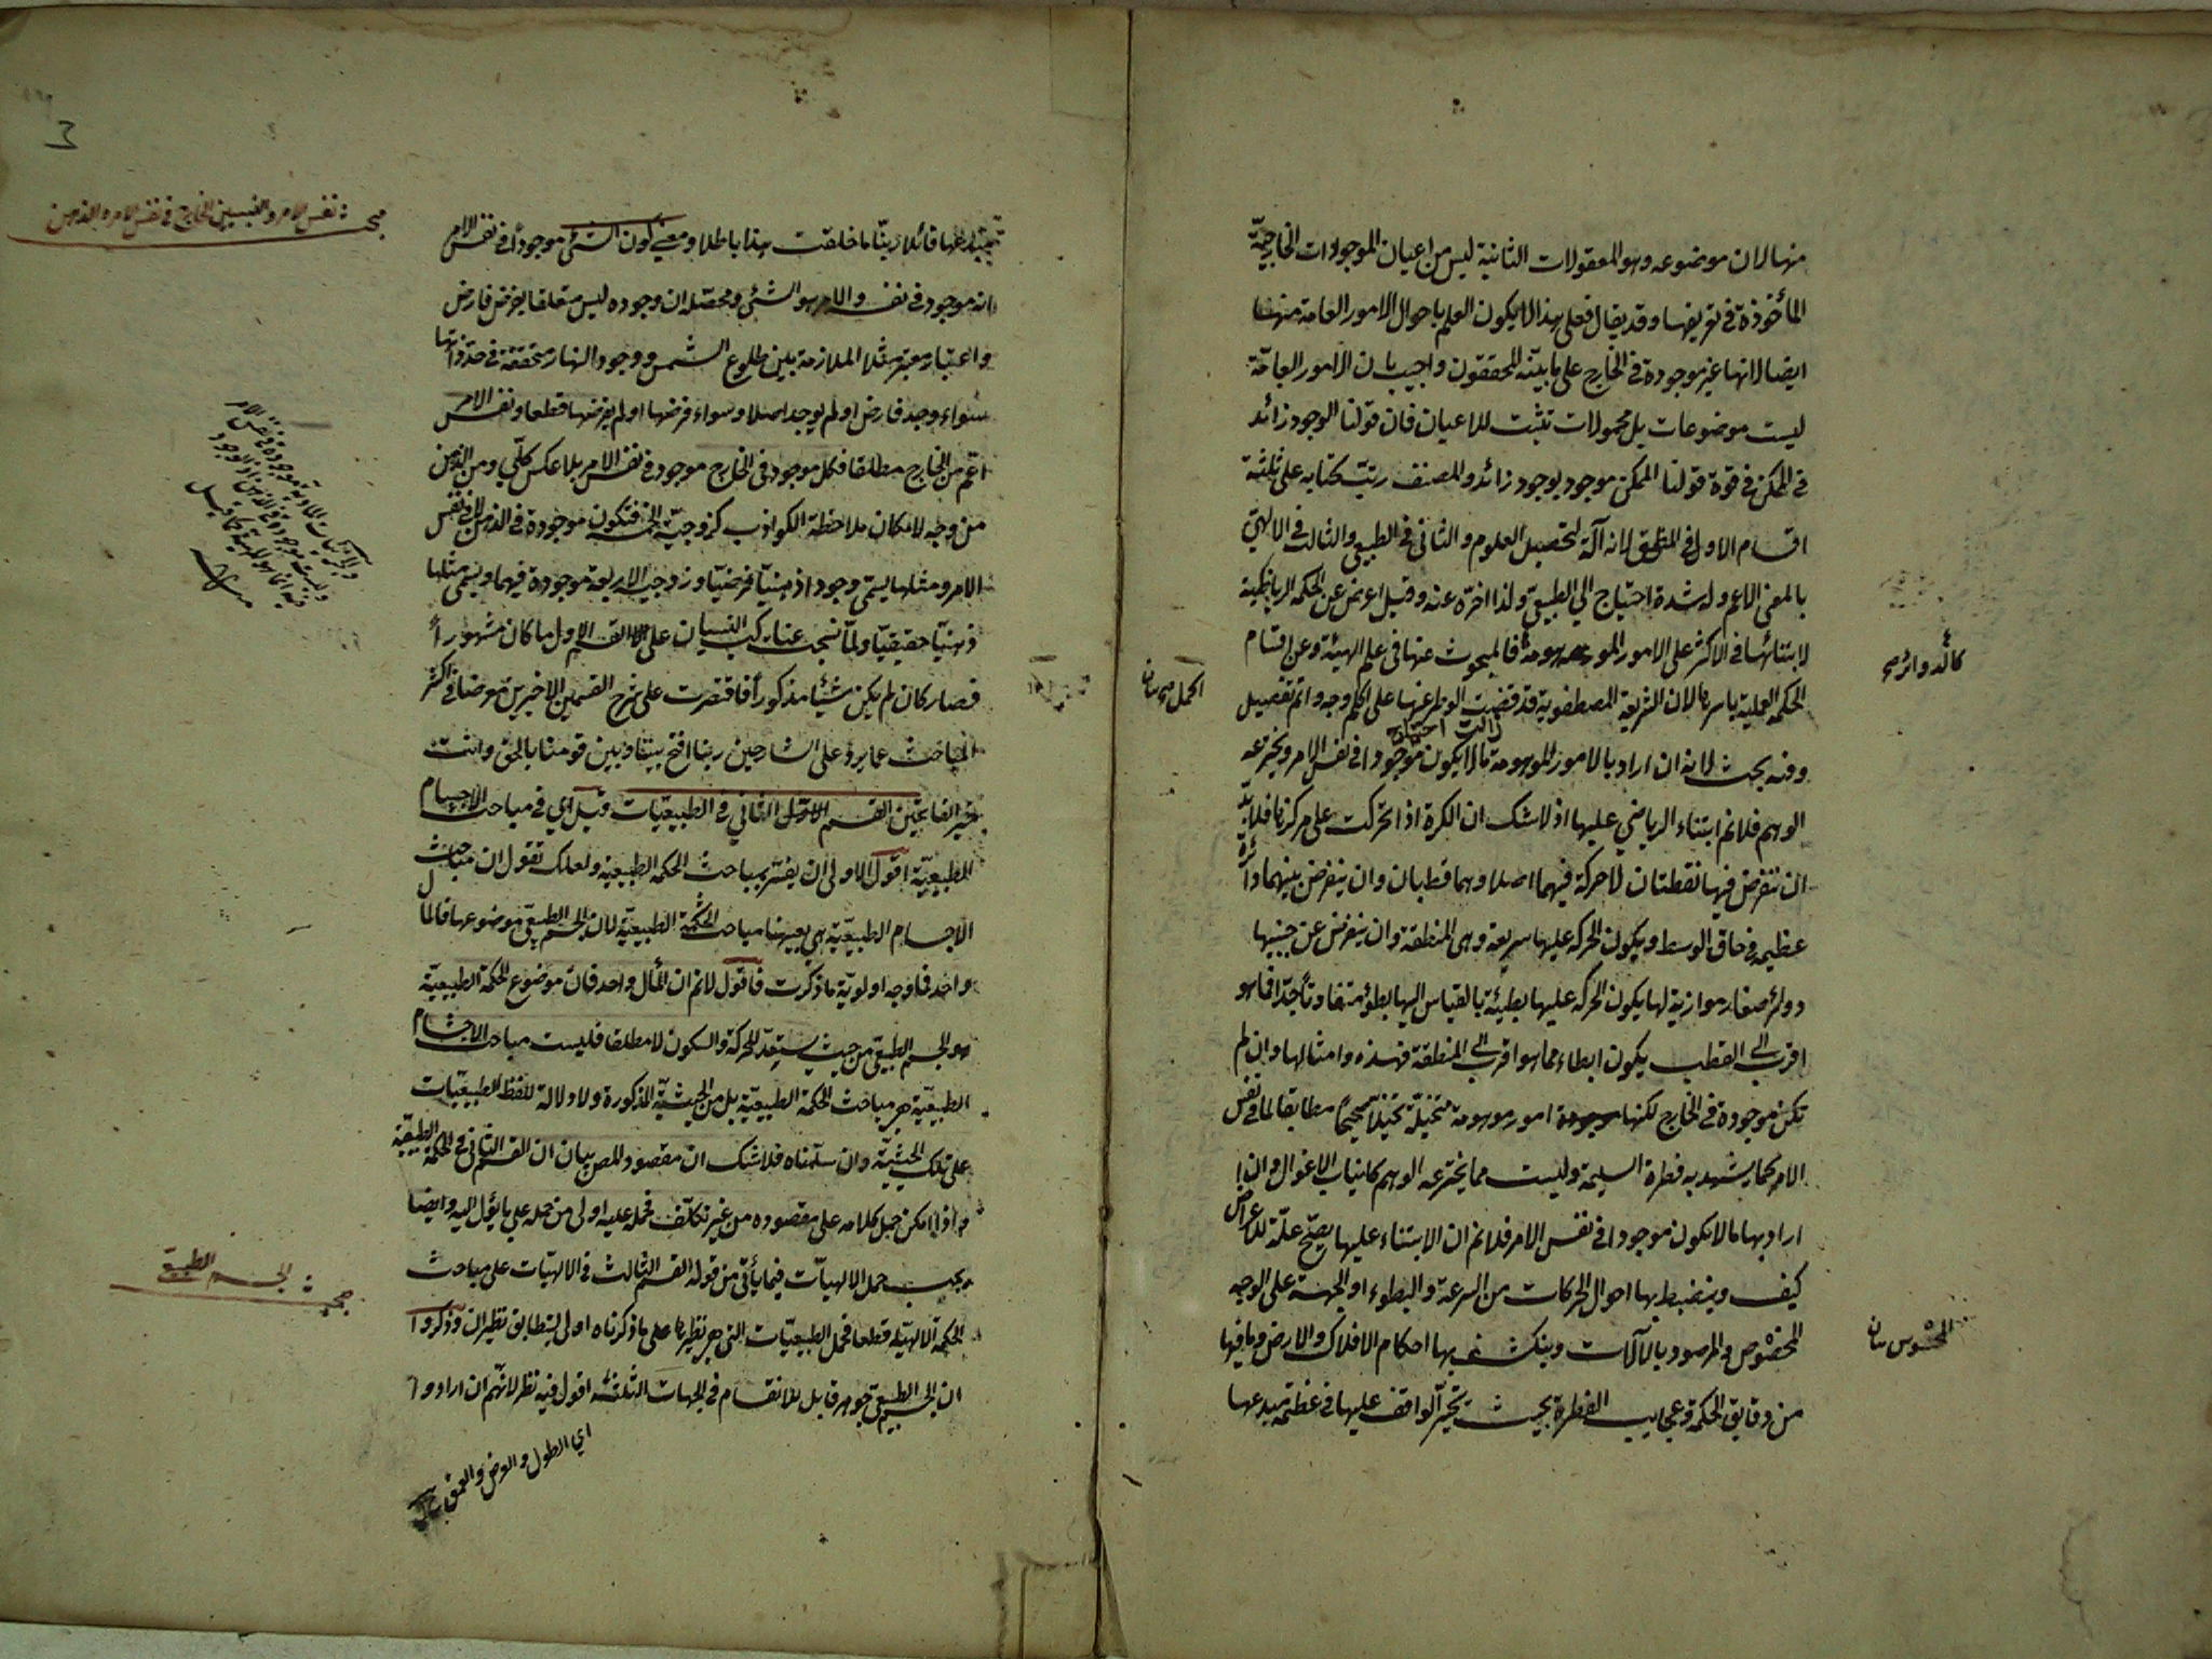 منها لان موضوعه وهو المعقولات الثانية ليس من اعيان الموجودات الخارجيّة
المأخوذة في تعريفها وقد يقال فعلى هذا لا يكون العلم باحوال الامور العامة منها
ايضا لانها غير موجودة في الخارج على ما بيّنه المحققون واجيب بان الامور العامّة
ليست موضوعات بل محمولات تثبت للاعيان فان قولنا الوجود زائد
في الممكن في قوة قولنا الممكن موجود بوجود زائد والمصنف رتّب كتابه على ثلثة
اقسام الاول في المنطق لانه آلة لتحصيل العلوم والثاني في الطبيعي والثالث في الالهيّ
بالمعنى الاعم وله شدة احتياج الى الطبيعيّ ولذا اخّره عنه وقيل اعرض عن الحكمة الرياضية
لابتنائها في الاكثر على الامور الموهومة فالمبحوث عنها في علم الهيئة وعن اقسام
كالدوائر
الحكمة العملية باسرها لان الشريعة المصطفوية قد قضت الوطر عنها على اكمل وجه واتم تفصيل
زالت احتياج
وفيه بحث لانه ان اراد بالامور الموهومة ما لا يكون موجودا في نفس الامر ويخترعه
الوهم فلا نم ابتناء الرياضي عليها اذ لا شك ان الكرة اذا تحركت على مركزها فلا بدّ
ان تفرض فيها نقطتان لا حركة فيهما اصلا وهما قطبان وان يفرض بينهما دائرة
عظيمة في حاق الوسط ويكون الحركة عليها سريعة وهي المنطقة وان يفرض عن جنبيها
دوائر صغار موازية لها يكون الحركة عليها بطيئة بالقياس اليها بطؤ متفاوتا جدّا فما هو
اقرب الى القطب يكون ابطاء مما هو اقرب الى المنطقة فهذه وامثالها وان لم
تكن موجودة في الخارج لكنها امور موهومة متخيلّة تخيّلا صحيحا مطابقا لما في نفس
الامر كما يشهد به فطرة السليمة وليست مما يخترعه الوهم كانياب الاغوال وان
اراد بها ما لا يكون موجودا في نفس الامر فلا نم ان الابتناء عليها يصحّ علّة للاعراض
كيف وينضبط بها احوال الحركات من السرعة والبطوء او الجهة على الوجه
المخصوص والمرصود بالآلات وينكشف بها احكام الافلاك والارض وما فيها
من دقايق الحكمة وعجايب الفطرة بحيث يتحيّر الواقف عليها في عظمة مبدعها
مبحث نفس الامر والنسبين الخارج في نفس الامر والذهن
مبدعها قائلا ربّنا ما خلقت هذا باطلا ومعنى كون الشيء موجودا في نفس الامر
انه موجود في نفسه والامر هو الشئ ومحصّله ان وجوده ليس متعلقا بفرض فارض
واعتبار معتبر مثلا الملازمة بين طلوع الشمس ووجود النهار متحققة في حد ذاتها
سواء وجد فارض او لم يوجد اصلا وسواء فرضها او لم يفرضها قطعا ونفس الامر
اعم من الخارج مطلقا فكل موجود في الخارج موجود في نفس الامر بلا عكس كلّي ومن الذهن
من وجه لامكان ملاحظة الكواذب كزوجيّة الخمسة فتكون موجودة في الذهن لا في نفس
الامر ومثلها يسمّى وجودا ذهنيّا فرضيّا وزوجيّة الاربعة موجودة فيهما ويسمّى مثلها
ذهنيّا حقيقيّا ولمّا نسجت عناكب النسيان على القسم الاول ما كان مشهوراً
فصار كان لم يكن شيئا مذكورا فاقتصرت على شرح القسمين الاخيرين معرضا في اكثر
المباحث عما يرد على الشارحين ربنا افتح بيننا وبين قومنا بالحق وانت
خير الفاتحين القسم الثاني في الطبيعيّات قيل اي في مباحث الاجسام
الطبيعيّة اقول الاولى ان يفسّر بمباحث الحكمة الطبيعيّة ولعلك تقول ان مباحث
الاجسام الطبيعيّة هي بعينها مباحث الحكمة الطبيعيّة لان الجسم الطبيعيّ موضوعها فالمآل
واحد فما وجه اولويّة ما ذكرت فاقول لا نم ان المآل واحد فان موضوع الحكمة الطبيعيّة
هو الجسم الطبيعيّ من حيث يستعدّ للحركة والسكون لا مطلقا فليست مباحث الاجسام
الطبيعيّة هي مباحث الحكمة الطبيعيّة بل من الحيثيّة المذكورة ولا دلالة للفظ الطبيعيّات
على تلك الحيثيّة وان سلّمناه فلا شك ان مقصود المص بيان ان القسم الثاني في الحكمة الطبيعيّة
واذا امكن حمل كلامه على مقصوده من غير تكلّف فحمله عليه اولى من حمله على ما يئول اليه وايضا
يجب حمل الالهيّات فيما يأتي من قوله القسم الثالث في الالهيّات على مباحث
الحكمة الالهيّة قطعا فحمل الطبيعيّات التي هي نظيرها على ما ذكرناه اولى ليتطابق نظيران وذكروا
مبحث الجسم الطبيعي
ان الجسم الطبيعيّ جوهر قابل للانقسام في الجهات الثلثة اقول فيه نظر لانّهم ان ارادوا
اي الطول والعرض والعمق